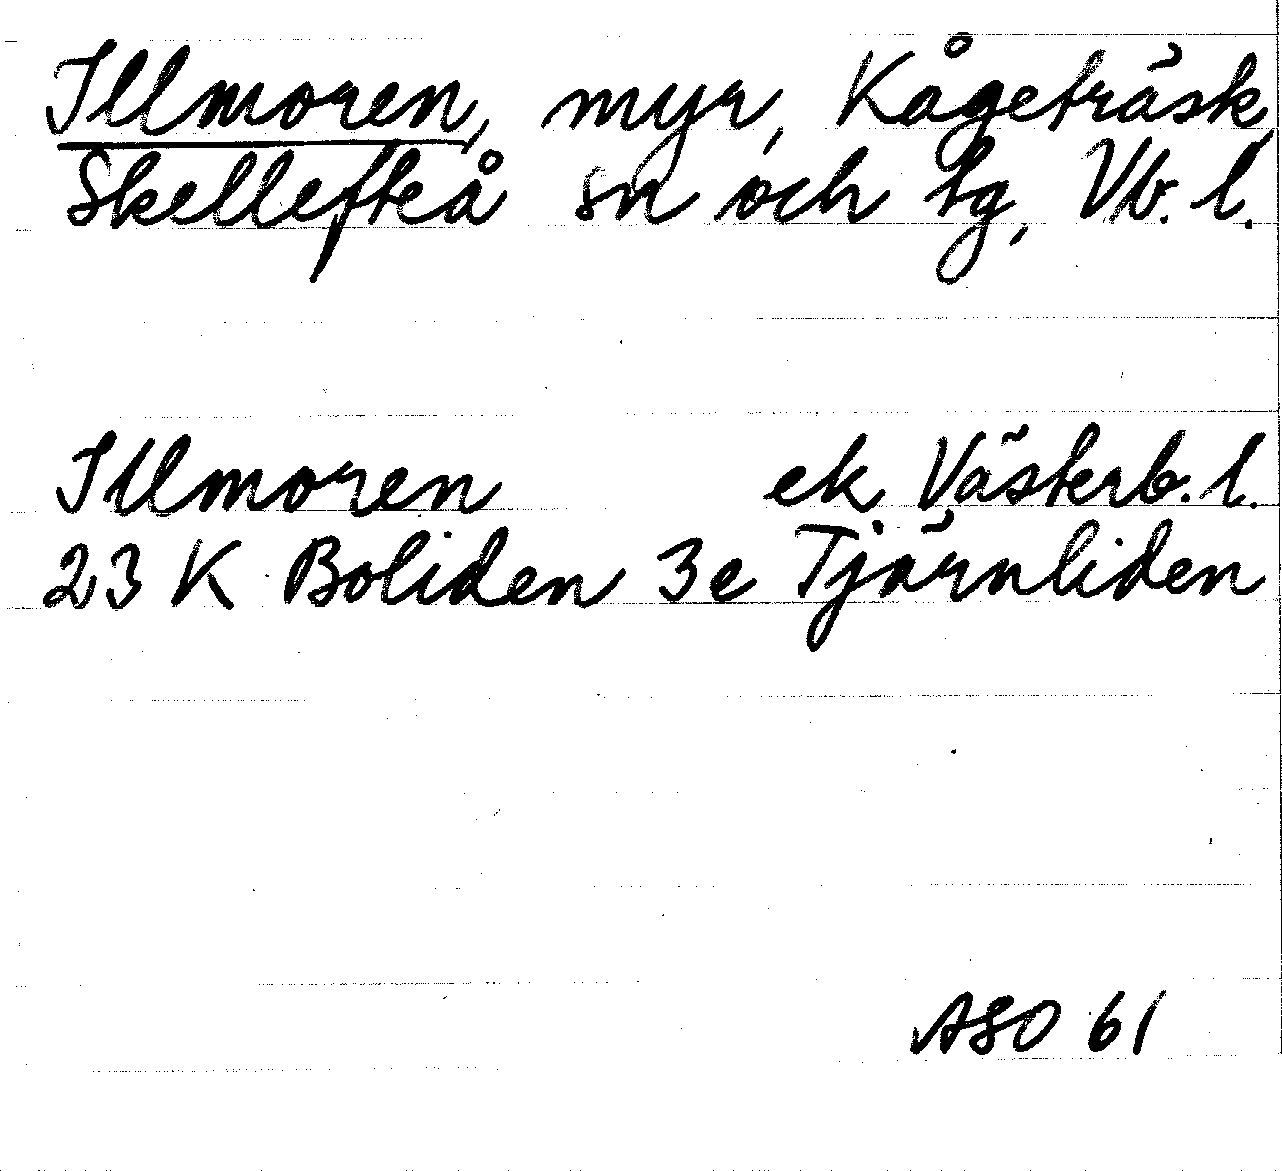 Illmoren, myr, Kågeträsk,
Skellefteå sn och tg, Vb. l.
Illmoren ek Västerb. l.
23 K Boliden 3e Tjärnliden
ASO 61